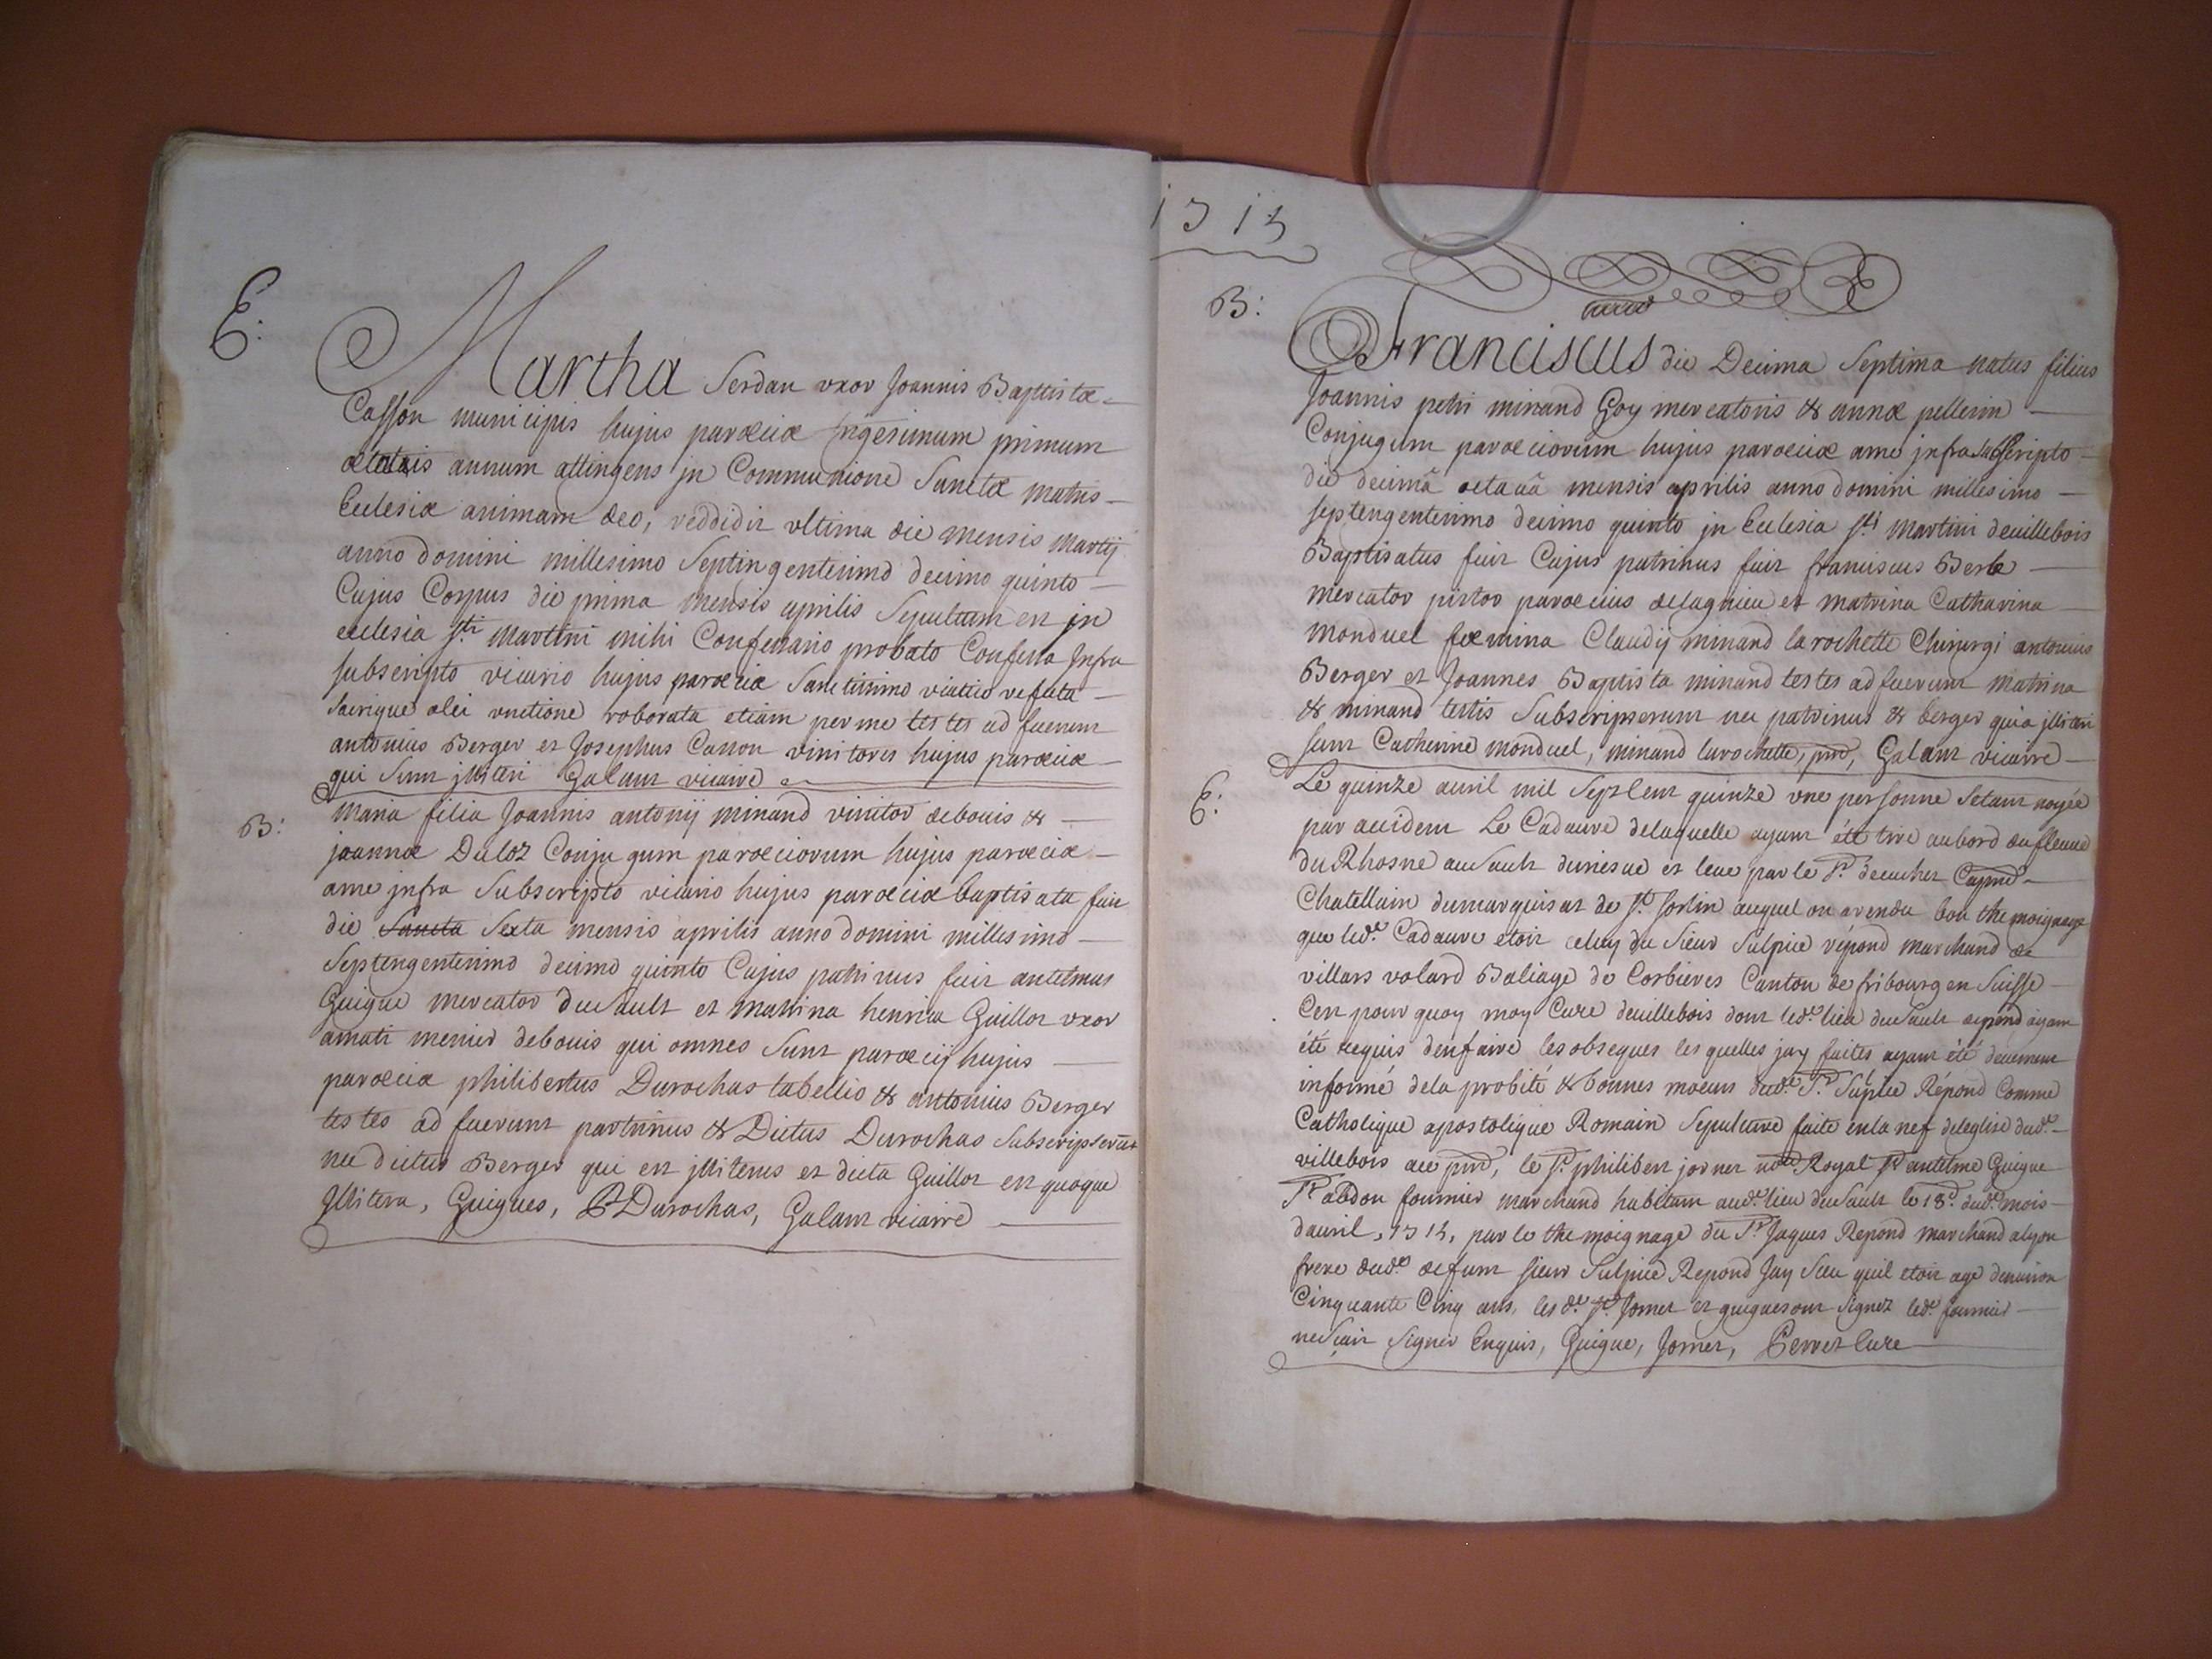 1715
E:
Martha Serdan uxor Joannis Baptistæ
Casson municipis hujus paroeciæ trigesimum primum
ætatis annum attingens jn Communione Sanctæ matris
Ecclesiæ animam deo, reddidit ultima die mensis martij
anno domini millesimo Septingentesimo decimo quinto
Cujus Corpus die prima mensis aprilis Sepultum est jn
ecclesia Sti Martini mihi Confessario probato Confessa Jnfra
subscripto vicario hujus paroeciæ Sanctissimo viatico refecta
Sacrique olei unctione roborata etiam per me testes ad fuerunt
antonius Berger et Josephus Casson vinitores hujus paroeciæ
qui Sunt jlliteri Galant vicaire
B:
Maria filia Joannis antonij minand vinitor debouis &
joannæ Duloz Conjugum paroeciorum hujus paroeciæ
ame jnfra Subscripto vicario hujus paroeciæ baptisata fuit
die Sancta Sexta mensis aprilis anno domini millesimo
Septengentesimo decimo quinto Cujus patrinus fuit antelmus
Guigue mercator du Sault et matrina henrica Guillot uxor
amati menier debouis qui omnes Sunt paroecij hujus
paroeciæ philibertus Durochas tabellio & antonius Berger
testes ad fuerunt partrinus & Dictus Durochas Subscripserunt
nec dictus Berger qui est jlliterus et dicta Guillot est quoque
Jllitera, Guigues, P Durochas, Galant vicaire
B:
Franciscus die Decima Septima natus filius
Joannis petri minand Goy mercatoris & annæ pellerin
Conjugum paroeciorum hujus paroeciæ ame jnfra subscripto
die decimâ octauâ mensis aprilis anno domini millesimo
septengentesimo decimo quinto jn Ecclesia Sti Martini deuillebois
Baptisatus fuit Cujus patrinus fuit franciscus Berte
mercator pistor paroecius delagnieu et matrina Catharina
monduel foemina Claudij minand larochette Chirurgi antonius
Berger et Joannes Baptista minand testes ad fuerunt matrina
& minand testis Subscripserunt nec patrinus & berger quia jlliteri
sunt Catherine monduel, minand larochette, pnt, Galant vicaire
E:
Le quinze auril mil Sept Cent quinze une personne Setant noyée
par accident Le Cadaure delaquelle ayant été tiré au bord du fleuue
du Rhosne au Sault et leué par le Sr. decuchet
Chatellain du marquisat de St. Sorlin auquel on a rendu bon themoignage
que led.e Cadaure etoit celuy du Sieur Sulpice répond marchand de
villars volard Baliage de Corbieres Canton de fribourg en Suisse
C'est pour quoy moy Curé deuillebois dont led.e lieu du Sault depend ayant
été requis d'en faire les obseques les quelles jay faites ayant été deuement
informé de la probité & bonnes moeurs dud.e Sr. Sulpice Répond Comme
Catholique apostolique Romain Sepulture faite en la nef de leglise dud.e
villebois le Sr. philibert jornet Royal Sr antelme Guigue
Sr abdon fournier marchand habitant aud.e lieu du Sault le 18e. dud.e mois
dauril, 1715, par le themoignage du Sr. Jaques Repond marchand a lyon
frere dud.e defunt sieur Sulpice Repond Jay Sceu quil etoit agé denuiron
Cinquante Cinq ans, les d.e Sr Jornet et guigues ont Signez led.e fournier
ne Scait Signer Enquis, Guigue, Jornet, Perret Curé